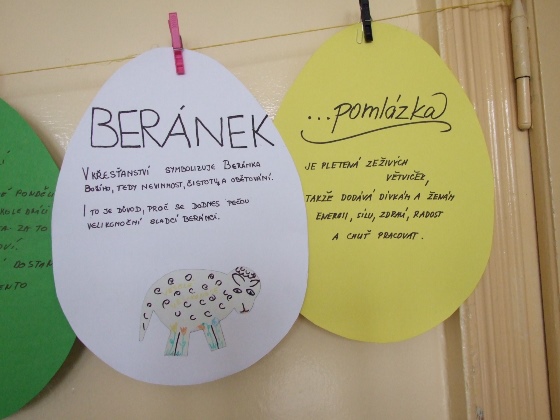 BERÁNEK
V KŘESŤANSTVÍ SYMBOLIZUJE BERÁNKA
BOŽÍHO, TEDY NEVINNOST, ČISTOTU A OBĚTOVÁNÍ.
I TO JE DŮVOD, PROČ SE DODNES PEČOU
VELIKONOČNÍ SLADCÍ BERÁNCI.
...pomlázka
JE PLETENÁ ZEŽIVÝCH
VĚTVIČEK,
TAKŽE DODÁVÁ DÍVKÁM A ŽENÁM
ENERGII, SÍLU, ZDRAVÍ, RADOST
A CHUŤ PRACOVAT.
PONDĚL
ZA TO
DOSTAN